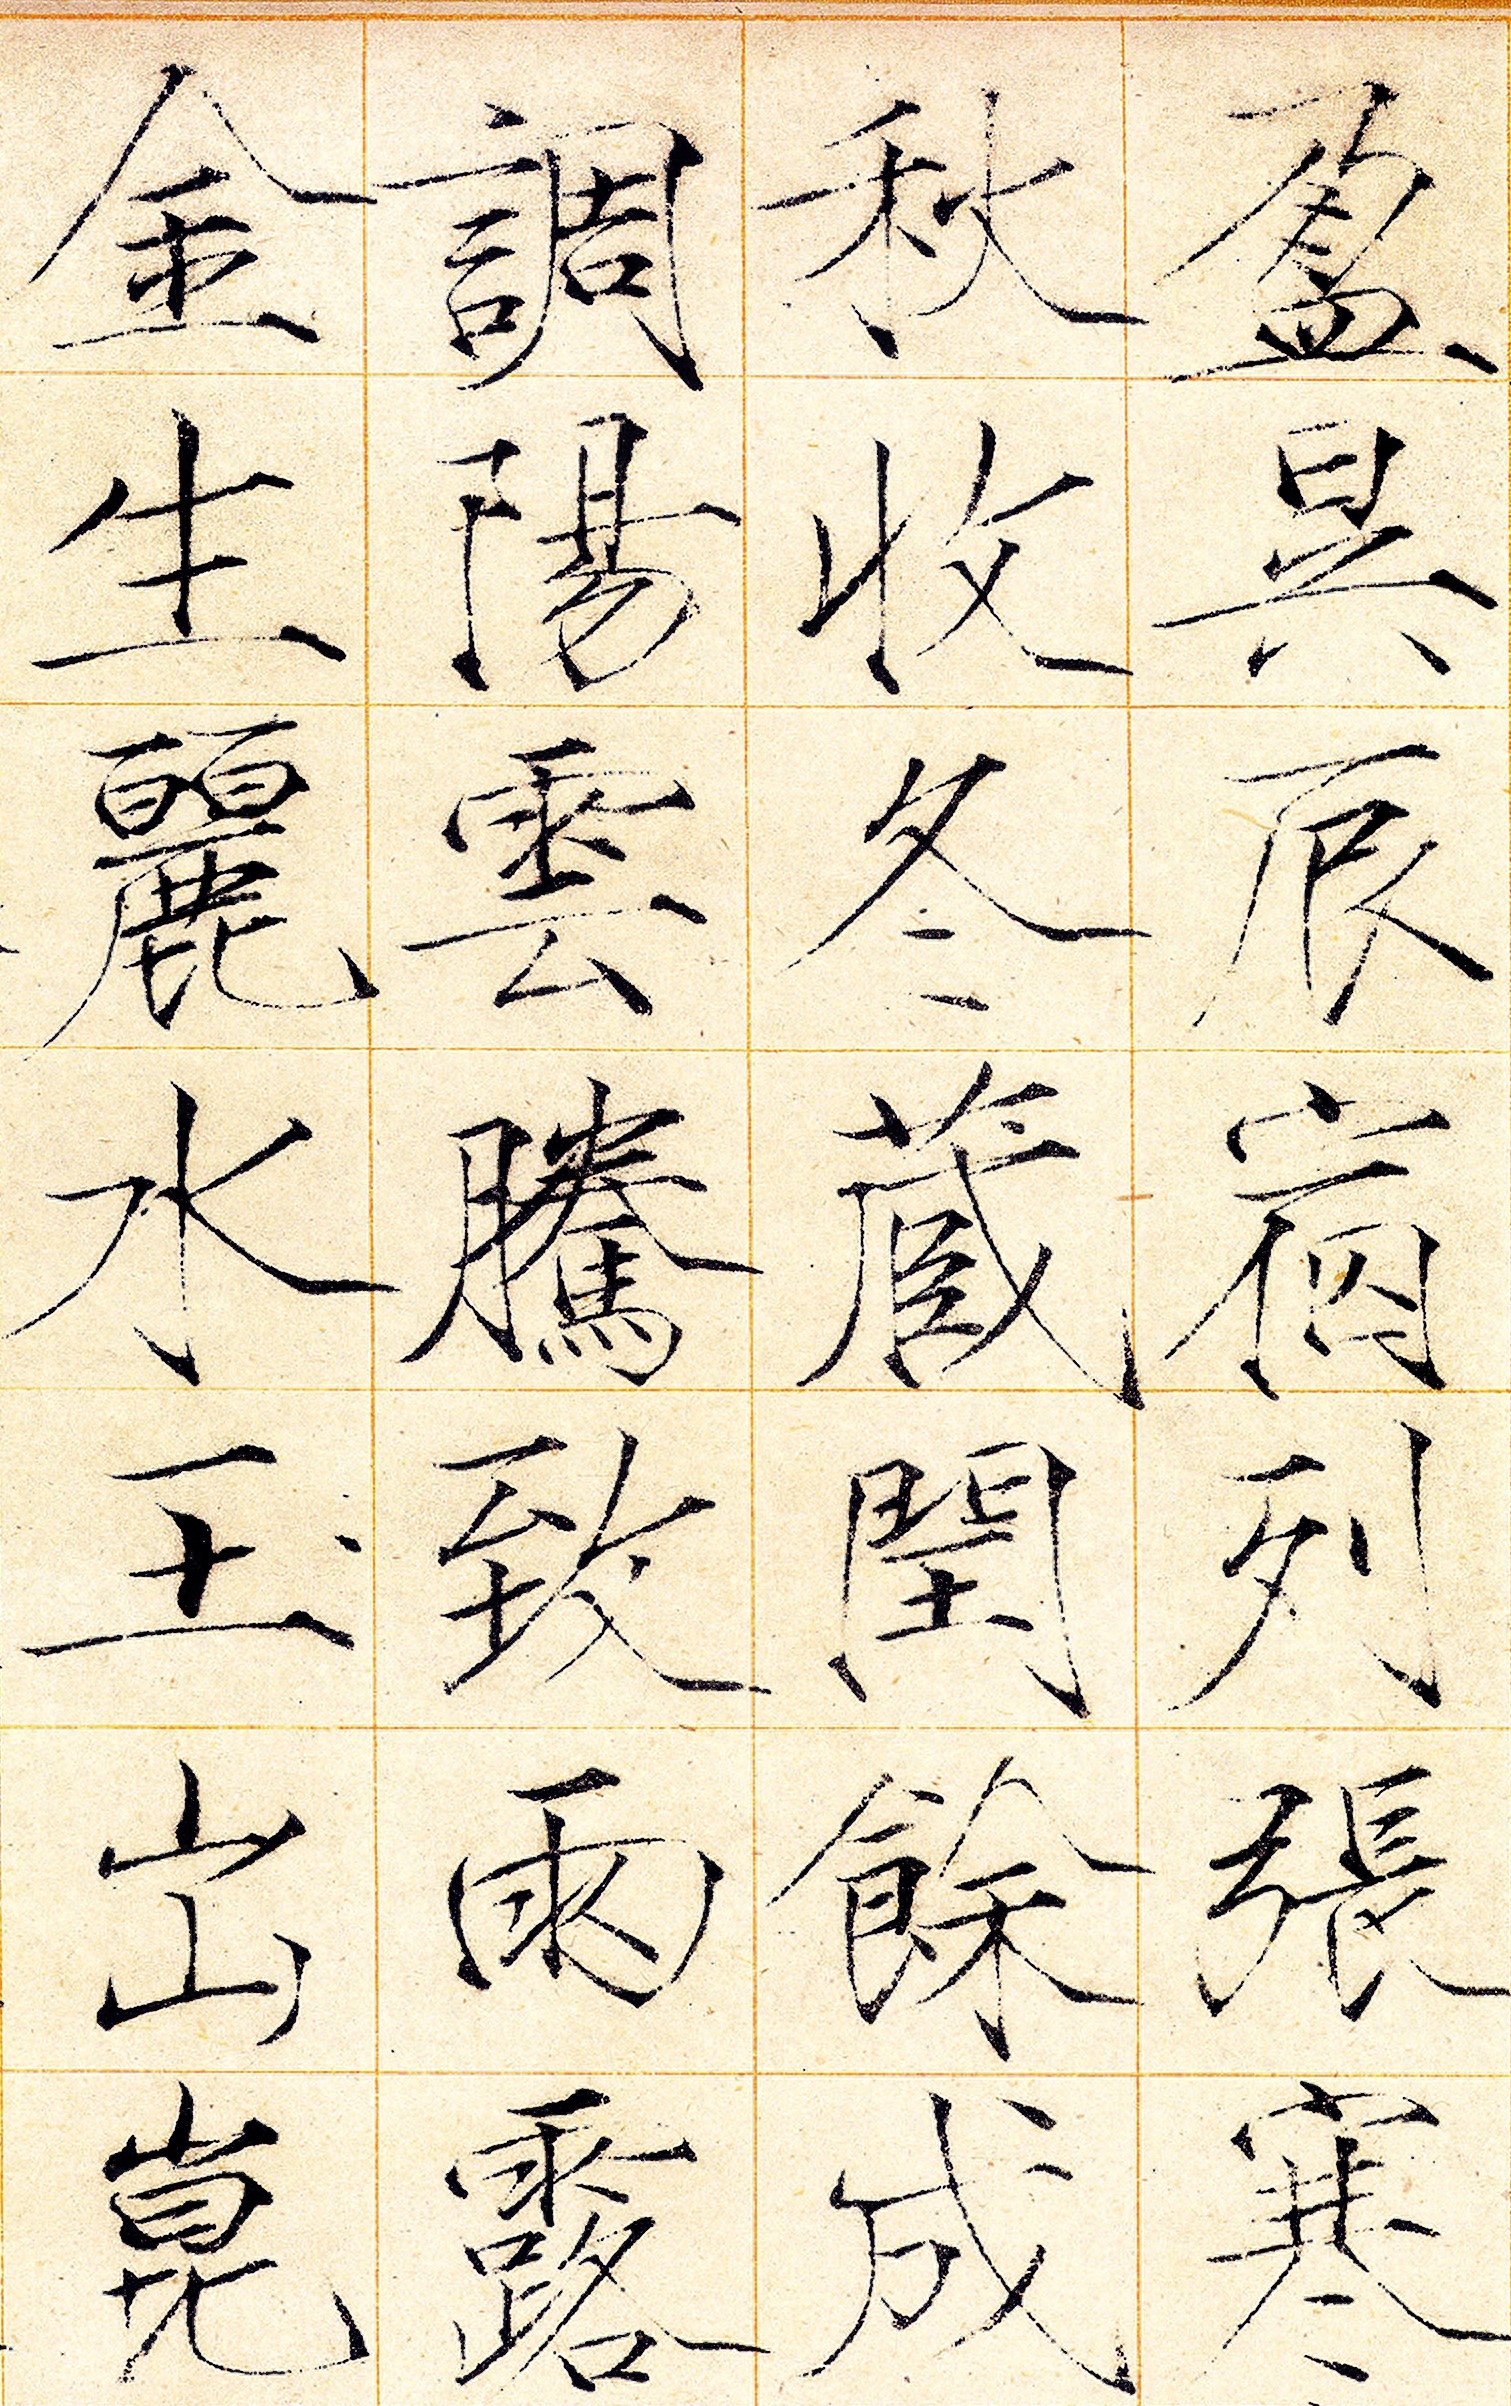 盈昃辰宿列張寒
秋收冬藏閏餘成
調陽雲騰致雨露
金生麗水玉出崑